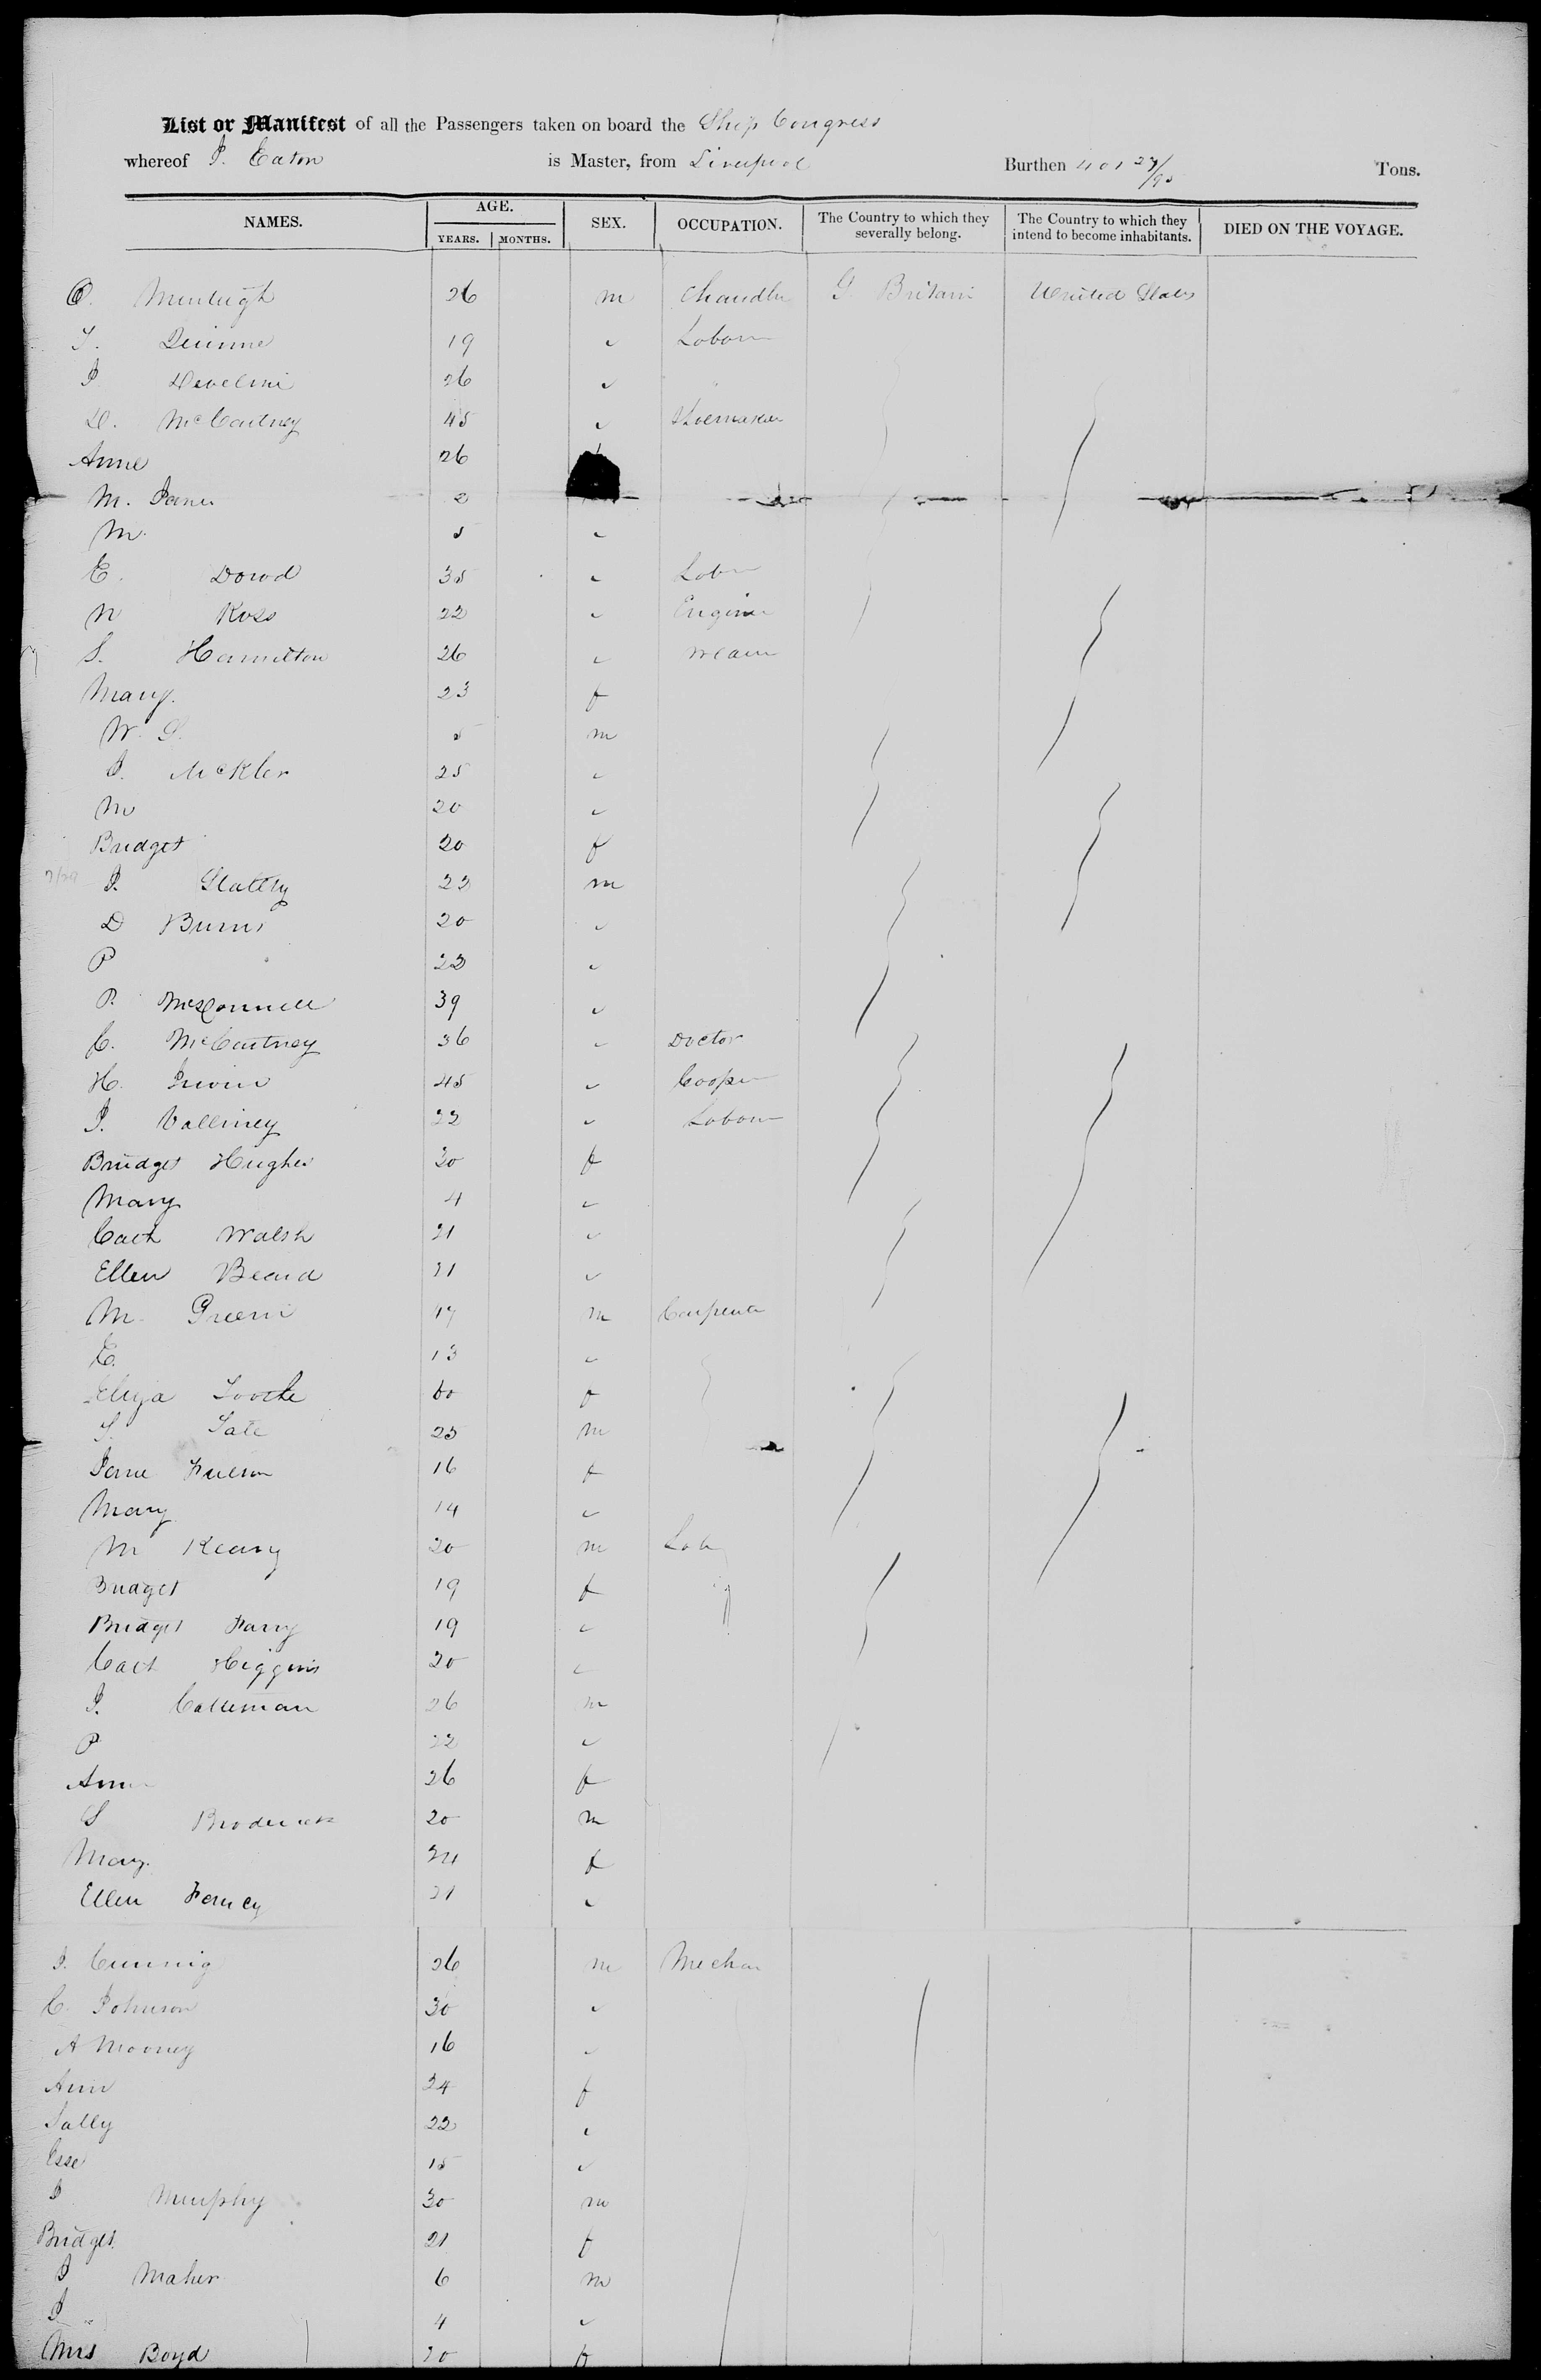 List or Manifest of all the Passengers taken on board the Ship Congress
whereof J. Eaton is Master, from Liverpool Burthen 401 27/95 Tons.
NAMES. AGE. SEX. OCCUPATION. The Country to which they severally belong. The Country to which they intend to become inhabitants. DIED ON THE VOYAGE.
YEARS. MONTHS.
26 m Chandler G. Britain United States
19 Labour
P 26 "
D. McCartney 45 Shoemaker
Anne 26
M. Jane 2
M. 5
E. Dowd 35 Labr
N Ross 22 Engineer
S. Hamilton 26 Weaver
Mary. 23 f
W. 5 m
J. 25
M 20
Bridget 20 f
P. Slattery 22 m
D Burns 20
P 22
P. McConnell 39
C. McCartney 36 Doctor
H. Irwin 45 Cooper
J. 22 Labour
Bridget Hughes 30 f
Mary 4
Cath Walsh 21
Ellen Beard 21
M. Green 17 m Carpenter
E. 13
Eliza 60 f
T. Tate 25 m
Jane 16 f
Mary 14
M Keary 20 m Lab
Bridget 19 f
Bridget Farry 19
Cath Higgins 20
J. Calleman 26 m
P. 22
Ann 26 f
S Broderick 20 m
Mary. 24 f
Ellen 21
J. 26 m Mechan
C. Johnson 30
A Mooney 16
Ann 24 f
Sally 22
Esse 15
J Murphy 30 m
Bridget. 21 f
J Maher 6 m
J " 4
Mrs Boyd 20 f